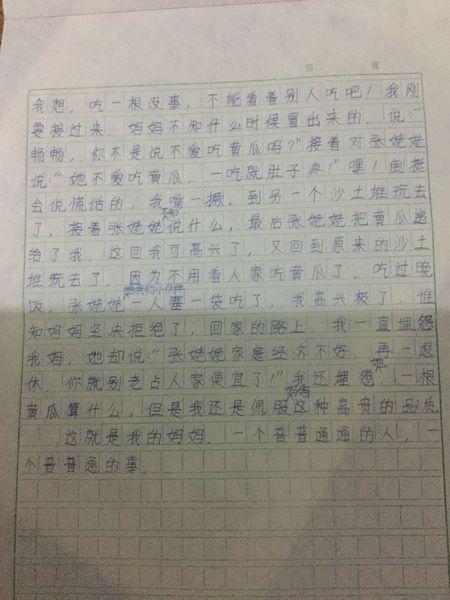 我想，吃一根没事，不能看着别人吃吧！我刚
要接过来，妈妈不知什么时候冒出来的，说：“
畅畅，你不是说不爱吃黄瓜吗？”接着对张姥姥
说：“她不爱吃黄瓜，一吃就肚子疼！”嘿！倒挺
会说慌话的，我嘴一撅，到另一个沙土堆玩去
了，接着张姥姥说什么，最后张姥姥把黄瓜递
给了我，这回我可高兴了，又回到原来的沙土
堆玩去了，因为不用看人家吃黄瓜了，吃过晚
饭，张姥姥给我们小伙伴一人塞一袋吃了，我高兴极了，谁
知妈妈坚来拒绝了，回家的路上，我一直埋怨
我妈，她却说：“张姥姥家庭经济不好，再一退
休，你就别老占人家便宜了！”我还埋怨她，一根
黄瓜算什么，但是我还是佩服妈妈这种高贵的品质
这就是我的妈妈，一个普普通通的人，一
个普普通的事。